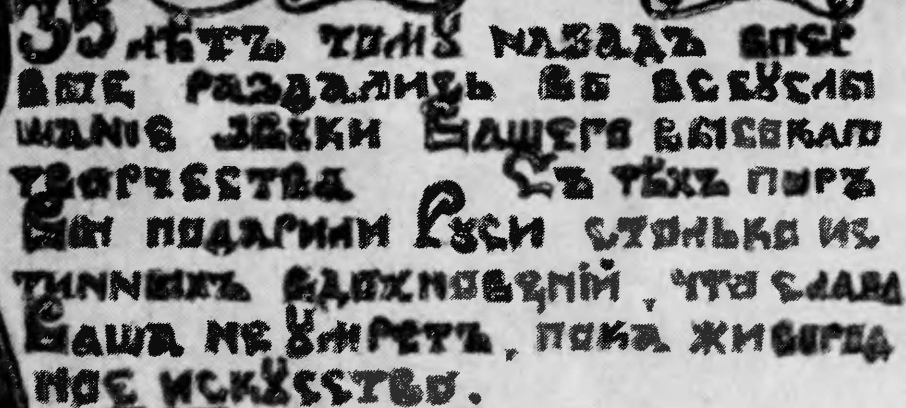 35 лѣтъ тому назадъ впер
вые раздались во всеуслы
шаніе звуки Вашего высокаго
творчества Съ тѣхъ поръ
Вы подарили Руси столько ис
тинныхъ вдохновеній, что слава
Ваша не умретъ, пока живо род
ное искусство.